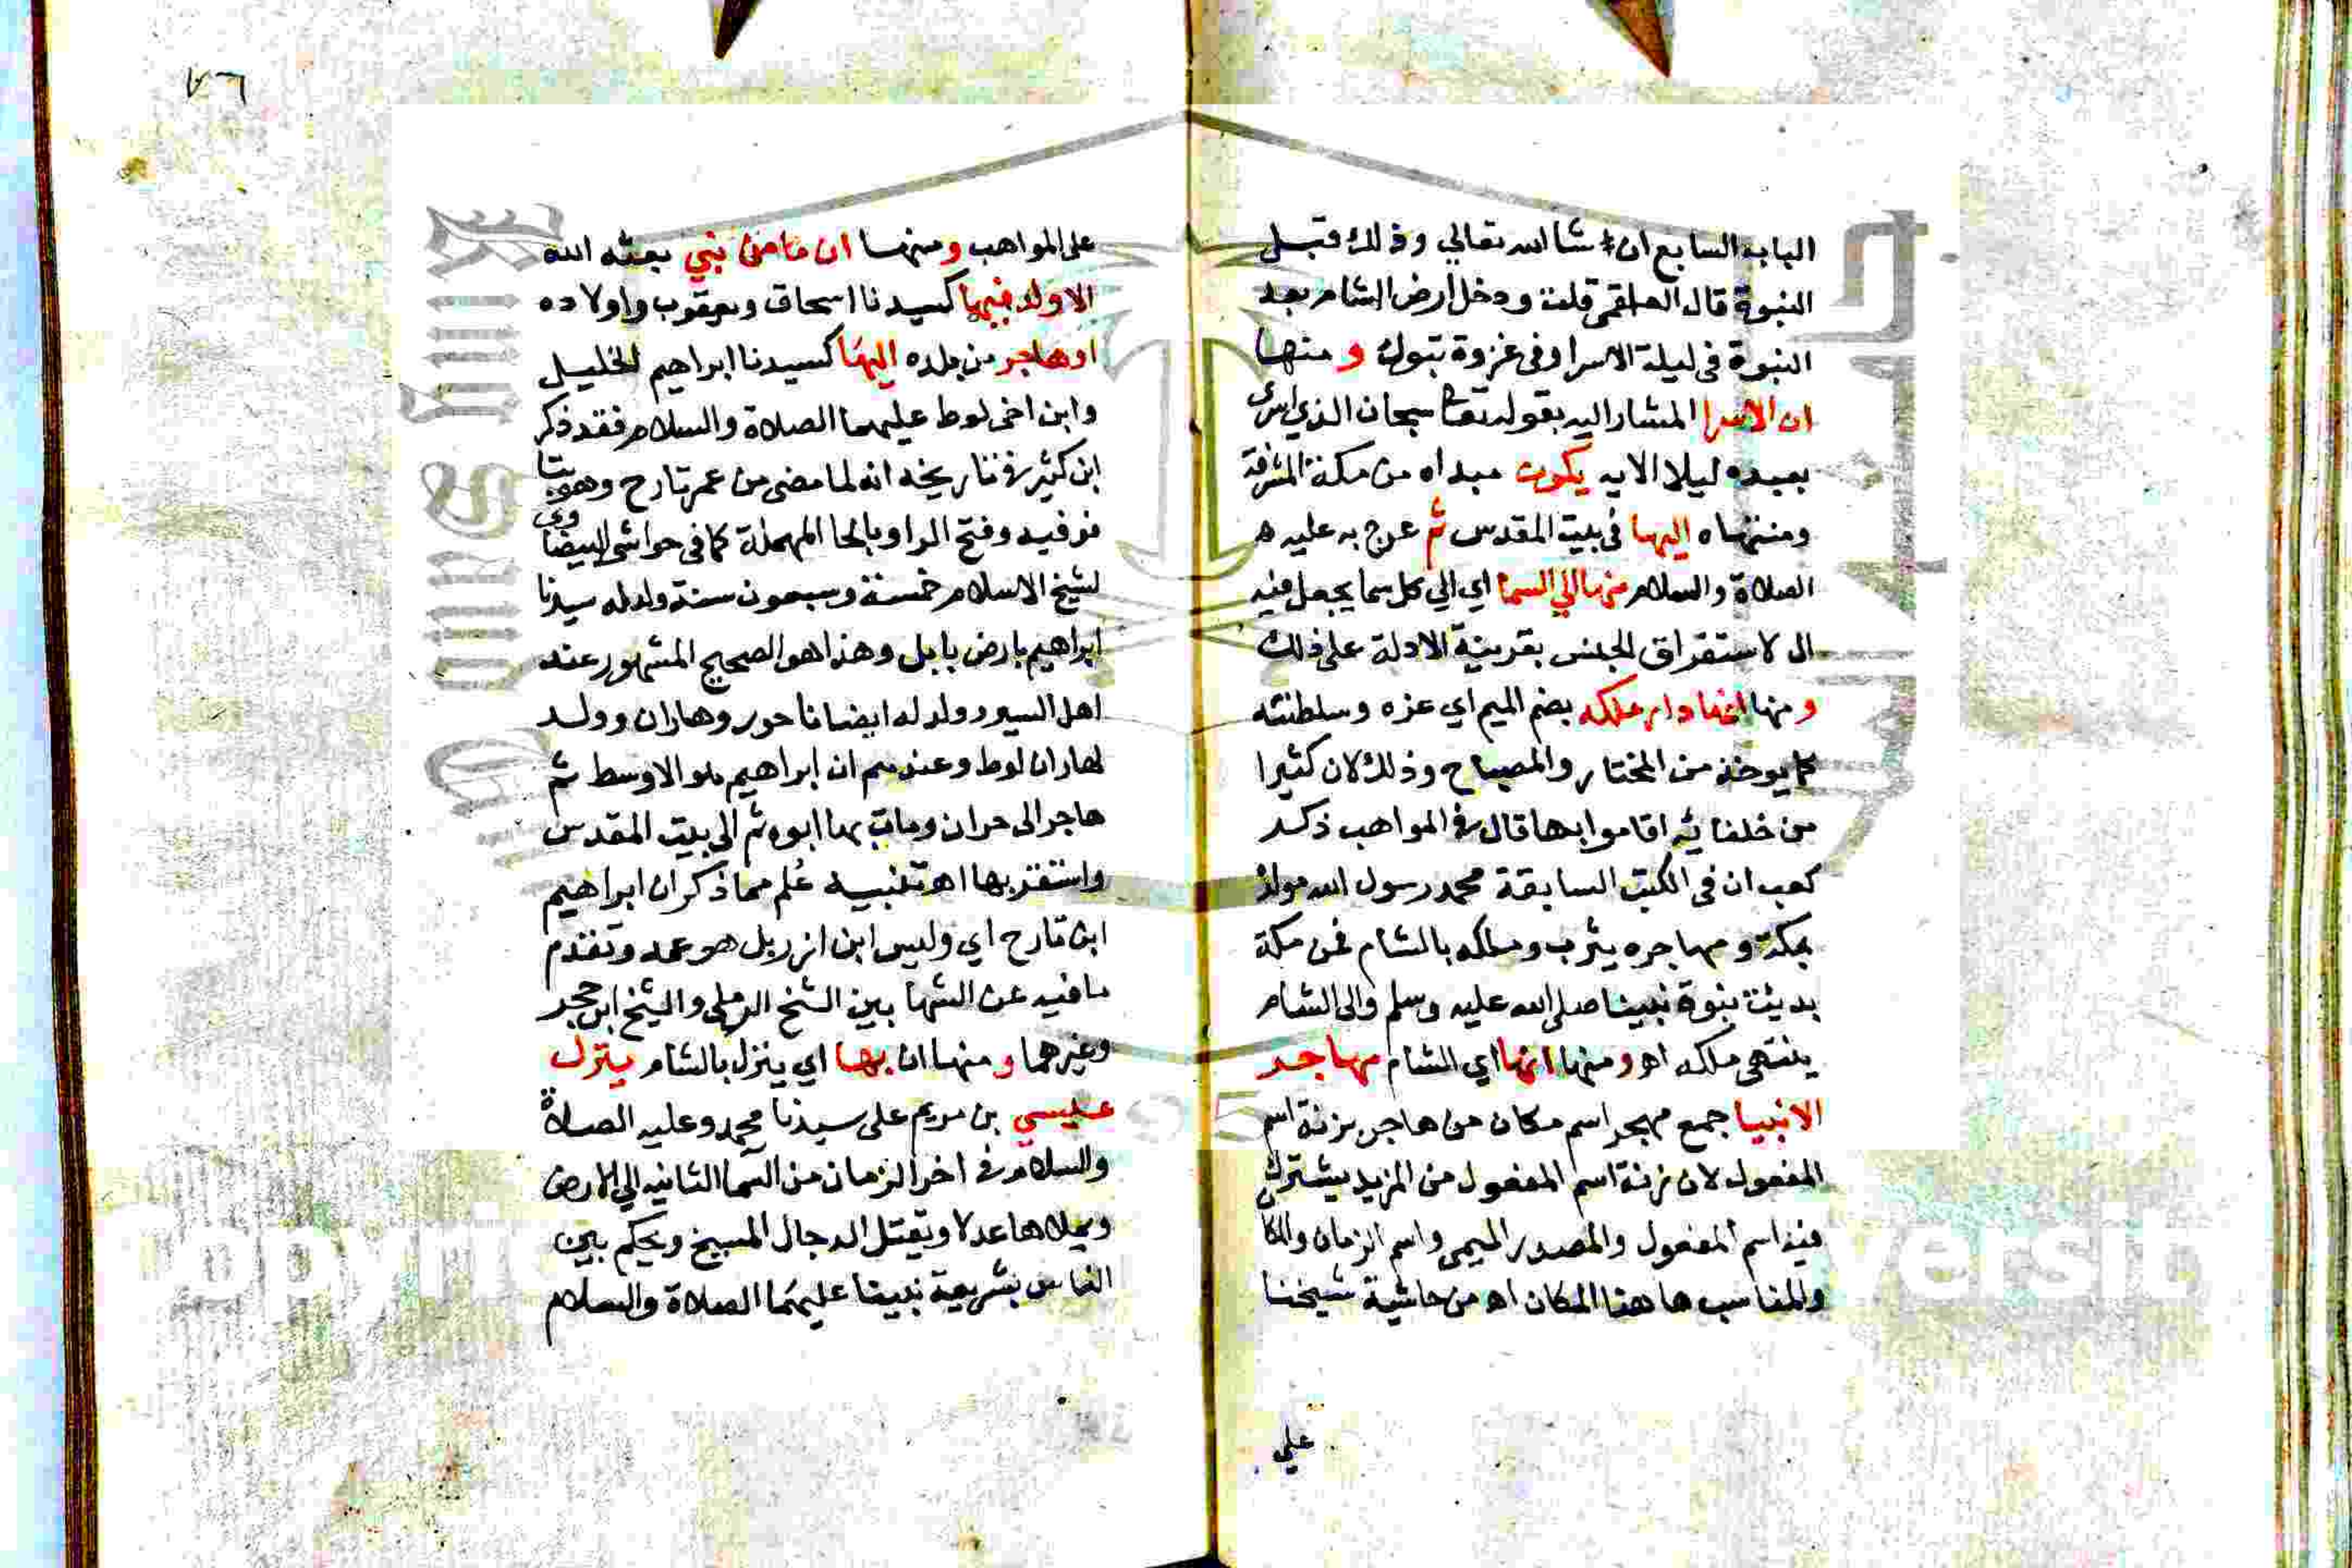 الباب السابع ان شا الله تعالي وذلك قبل
النبوة قال العلقمي قلت ودخل ارض الشام بعد
النبوة في ليلة الاسرا وفي غزوة تبوك ومنها
ان الاسرا المشار اليه بقوله تعا سبحان الذي اسرى
بعبده ليلا الايه يكون مبداه من مكة المشرفة
ومنتهاه اليها في بيت المقدس ثم عرج به عليه
الصلاة والسلام منها الي السما اي الي كل سما يجعل فيه
ال لاستغراق الجنس بقرينة الادلة على ذلك
ومنها انها دار ملكه بضم الميم اي عزه وسلطنته
كما يوخذ من المختار والمصباح وذلك لان كثيرا
من خلفايه اقاموا بها قال في المواهب ذكر
كعب ان في الكتب السابقة محمد رسول الله مولده
بمكة ومهاجره يثرب وملكه بالشام فمن مكة
بديت نبوة نبينا صلى الله عليه وسلم والى الشام
ينتهى ملكه اه ومنها انها اي الشام مهاجر
الانبيا جمع مهجر اسم مكان من هاجر بزنة اسم
المفعول لان زنة اسم المفعول من المزيد يشترك
فيه اسم المفعول والمصدر الميمي واسم الزمان والمكا
والمناسب هاهنا المكان اه من حاشية شيخنا
علي
٧٦
على المواهب ومنها ان ما من نبي بعثه الله
الا ولد فيها كسيدنا اسحاق ويعقوب واولاده
او هاجر من بلده اليها كسيدنا ابراهيم الخليل
وابن اخي لوط عليهما الصلاة والسلام فقد ذكر
ابن كثير في تاريخه انه لما مضى من عمر تارح وهو بتا
فوقيه وفتح الرا وبالحا المهملة كما في حواشي البيضاوي
لشيخ الاسلام خمسة وسبعون سنة ولد له سيدنا
ابراهيم بارض بابل وهذا هو الصحيح المشهور عند
اهل السير وولد له ايضا ناحور وهاران وولد
لهاران لوط وعندهم ان ابراهيم هو الاوسط ثم
هاجر الى حران ومات بها ابوه ثم الي بيت المقدس
واستقر بها اه تنبيه عُلم مما ذكر ان ابراهيم
ابن تارح اي وليس ابن ازر بل هو عمه وتقدم
ما فيه عن الشهابين الشيخ الرملي والشيخ ابن حجر
وغيرهما ومنها ان بها اي ينزل بالشام ينزل
عيسي بن مريم على سيدنا محمد وعليه الصلاة
والسلام في اخر الزمان من السما الثانيه الي الارض
ويملاها عدلا ويقتل الدجال المسيخ ويحكم بين
الناس بشريعة نبينا عليهما الصلاة والسلام